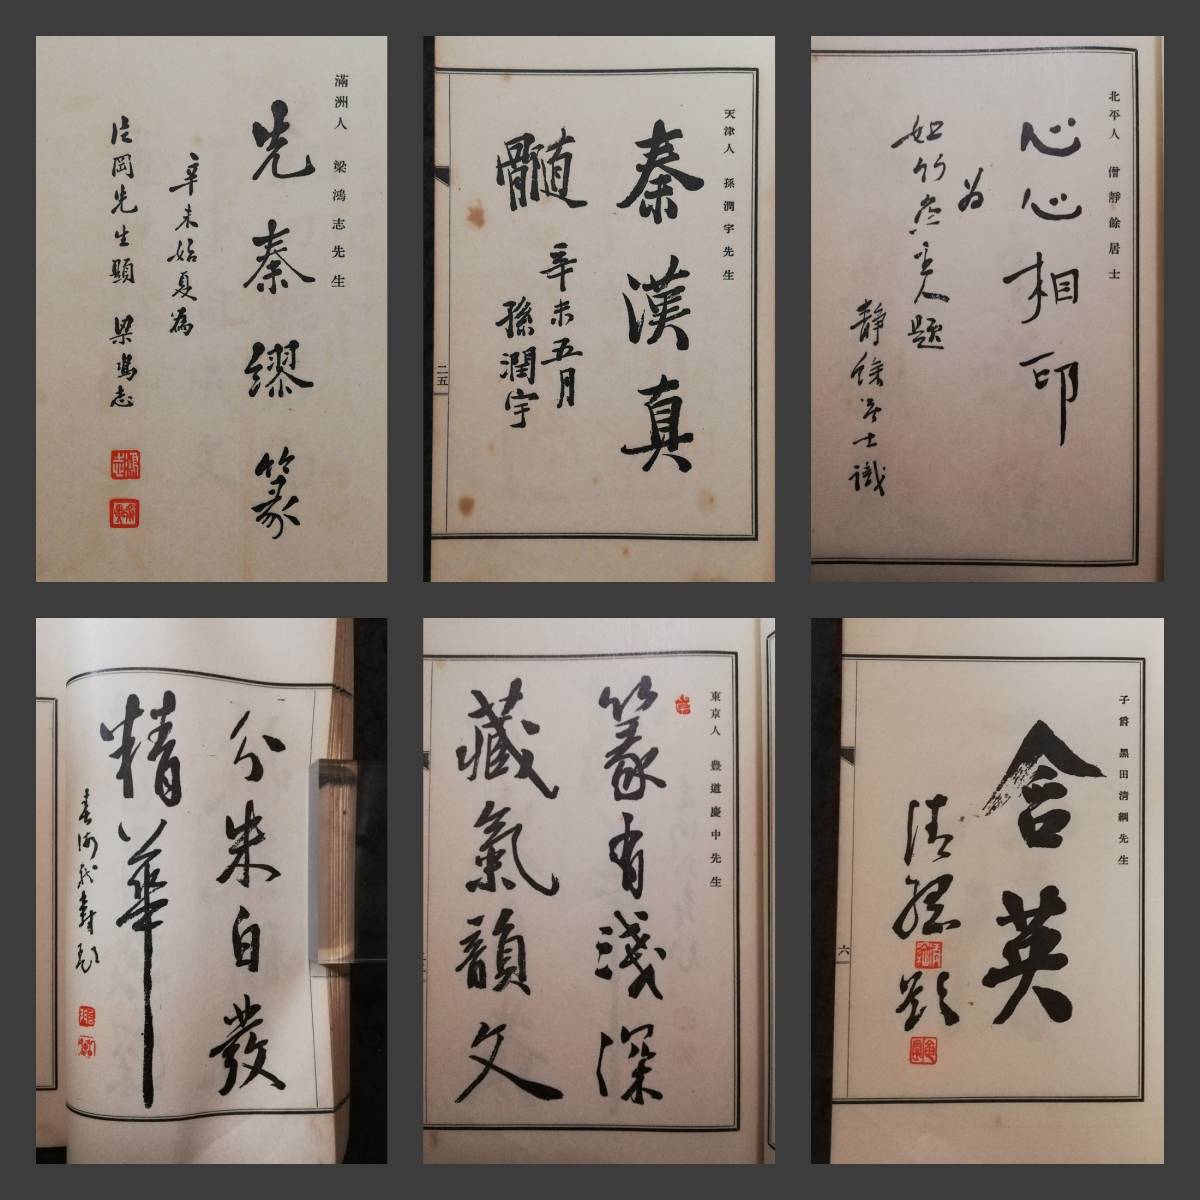 滿洲人 梁鴻志先生
先秦繆篆
辛未始夏為
片岡先生題 梁鴻志
天津人 孫潤宇先生
秦漢真
髓
辛未五月
孫潤宇
二五
北平人 僧靜餘居士
心心相印
為
如竹齋主人題
靜餘居士識
分朱白發
精華
東京人 豊道慶中先生
篆有淺深
藏氣韻文
子爵 黑田清綱先生
含英
清綱題
六